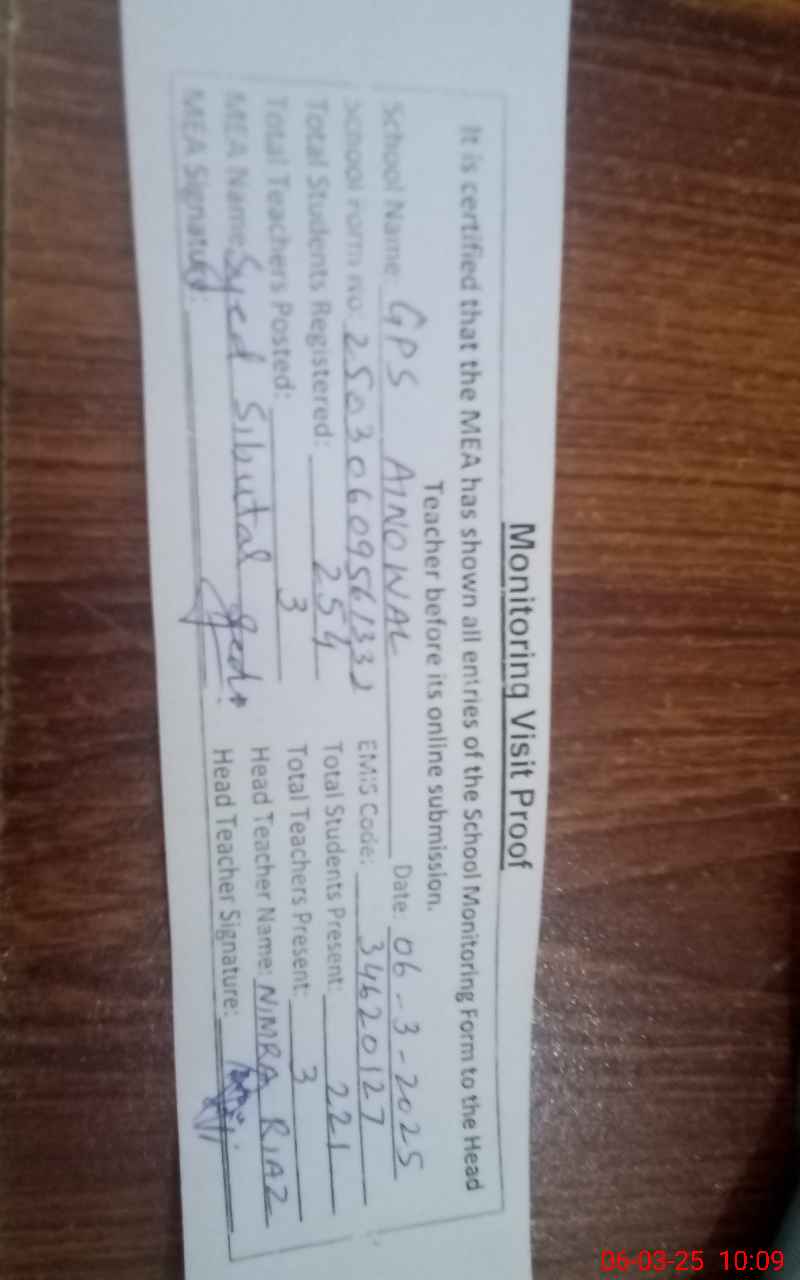 Monitoring Visit Proof
It is certified that the MEA has shown all entries of the School Monitoring Form to the Head
Teacher before its online submission.
School Name: GPS AINOWAL Date: 06-3-2025
School Form no. 2503060956133 EMIS Code: 34620127
Total Students Registered: 254 Total Students Present: 221
Total Teachers Posted: 3 Total Teachers Present: 3
MEA Name: Syed Sibutal Head Teacher Name: NIMRA RIAZ
MEA Signature: Head Teacher Signature:
06-03-25 10:09